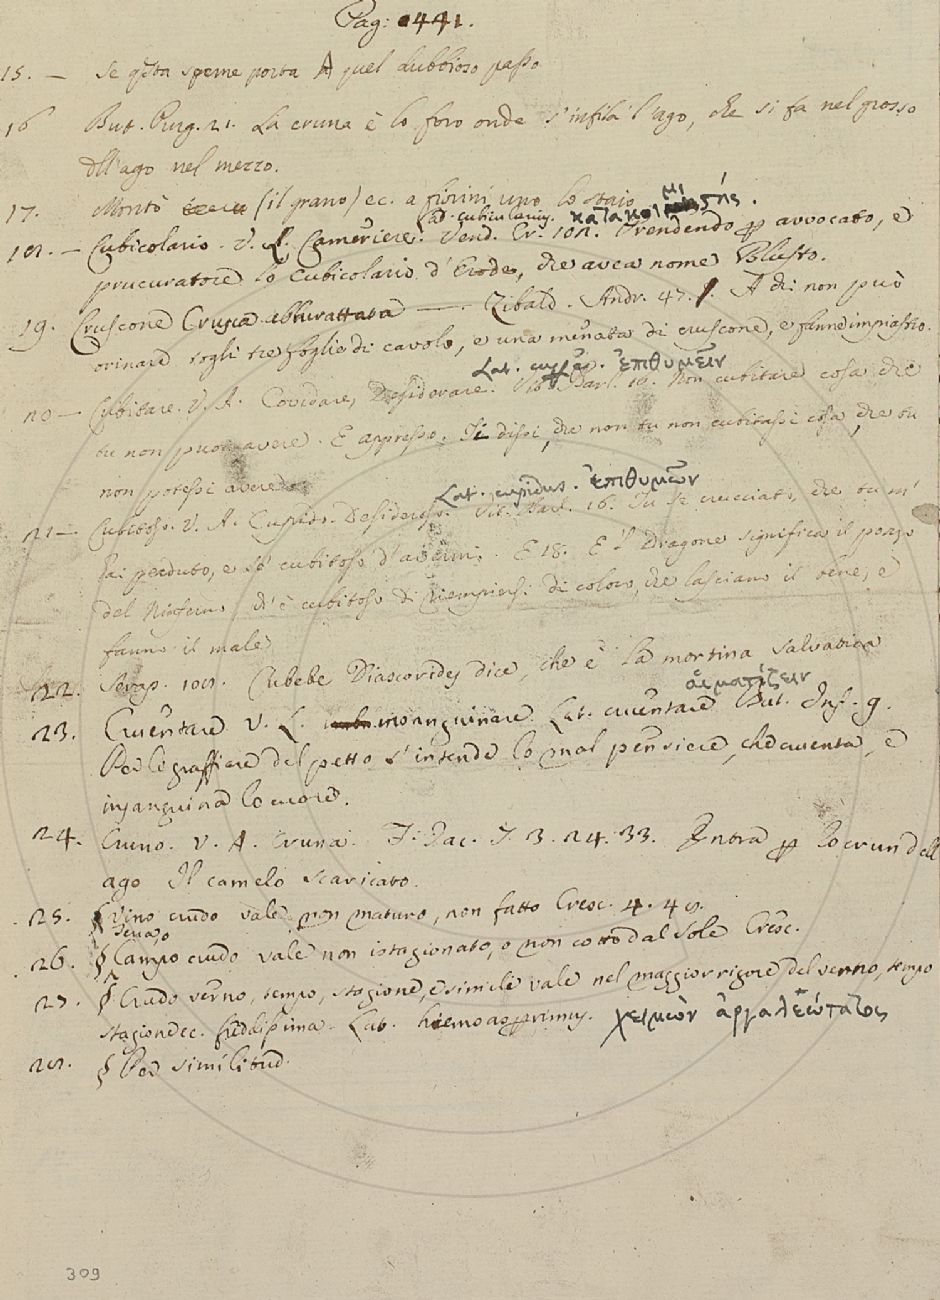 Pag: 441.
15. — Se q̃sta speme porta A quel dubbioso passo
16 But. Purg. 21. La cruna è lo foro onde s'infila l'ago, che si fa nel grosso
dll'ago nel mezzo.
17. Montò (il grano) ec. a fiorini uno lo staio
Lat. cubicularius. κατακοιμιστής.
18. — Cubicolario. V. L. Cameriere. Vend. Cr. 101. Prendendo p avvocato, e
prucuratore lo Cubicolario d'Erode, che avea nome Blasto.
19. Cruscone Crusca abburattata — Zibald. Andr. 47. A chi non può
orinare togli tre foglie di cavolo, e una menata di cruscone, e fanne impiastro.
Lat. cupere. ἐπιθυμεῖν
20 — Cubitare. V. A. Covidare, Desiderare. Vit. Barl. 16. Non cubitare cosa che
tu non puoi avere. E appresso. Ti dissi, che non tu non cubitassi cosa, che tu
non potessi avere
Lat. cupidus. ἐπιθυμῶν
21 — Cubitoso. V. A. Cupido. Desideroso. Vit. Barl. 16. Tu se crucciato, che tu m'
hai perduto, e se' cubitoso d'avermi. E 18. E 'l Dragone significa il pozzo
del Ninferno, ch'è cubitoso di riempiersi di coloro, che lasciano il bene, e
fanno il male
22. Serap. 101. Cubebe Diascorides dice, che è la mortina salvatica
αἱματίζειν
23. Cruentare V. L. insanguinare Lat. cruentare But. Inf. 9.
Per le graffiare del petto s'intende lo mal pensiere, che cruenta, e
insanguina lo cuore.
24. Cruno. V. A. Cruna. F. Jac. T 3. 24. 33. Entra p lo crun dell
ago Il camelo scaricato.
25. § Vino crudo vale non maturo, non fatto Cresc. 4. 41.
26. § Campo crudo vale non istagionato, o non cotto dal Sole Cresc.
27. § Crudo verno, tempo, stagione, e simile vale nel maggior rigore del verno, tempo
stagione ec. freddissima. Lat. hiems asperrima. χειμὼν ἀργαλεώτατος
28. § Per similitud.
309